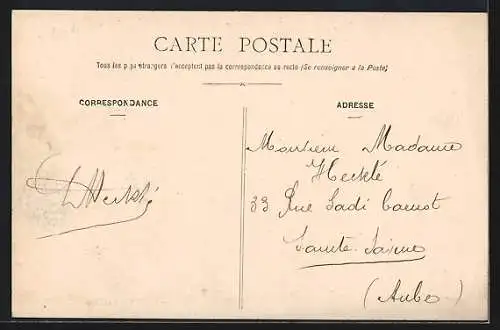 CARTE POSTALE
Tous les pays étrangers n'acceptent pas la correspondance au recto (Se renseigner à la Poste)
CORRESPONDANCE
ADRESSE
Monsieur Madame
33 Rue Sadi Carnot
Sainte-Savine
(Aube)